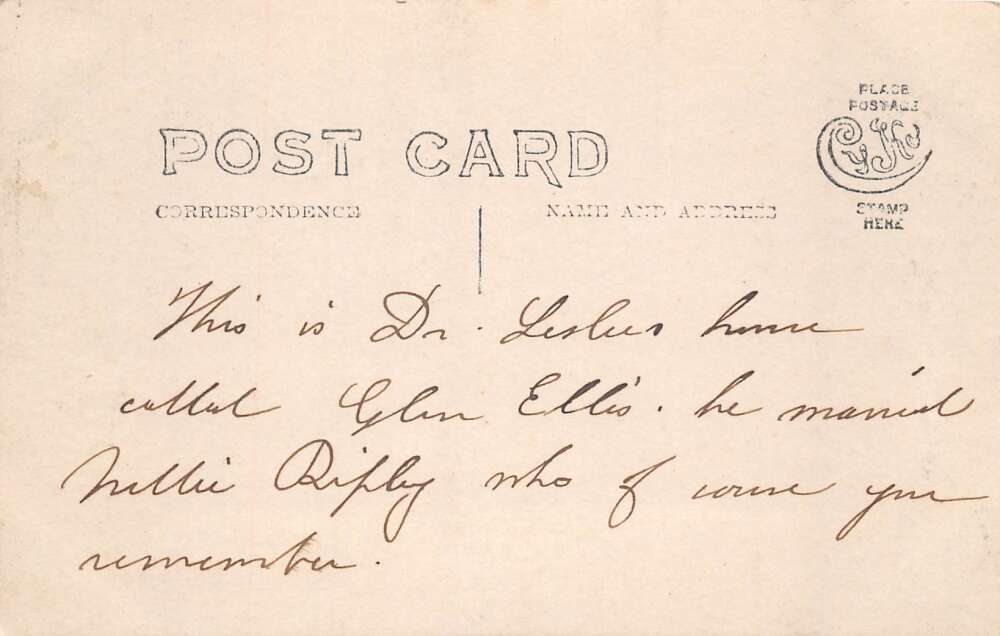 PLACE
POSTAGE
POST CARD
CYKO
CORRESPONDENCE
NAME AND ADDRESS
STAMP
HERE
This is Dr. Leslies home
called Glen Ellis. he married
Nellie Ripley who of course you
remember.